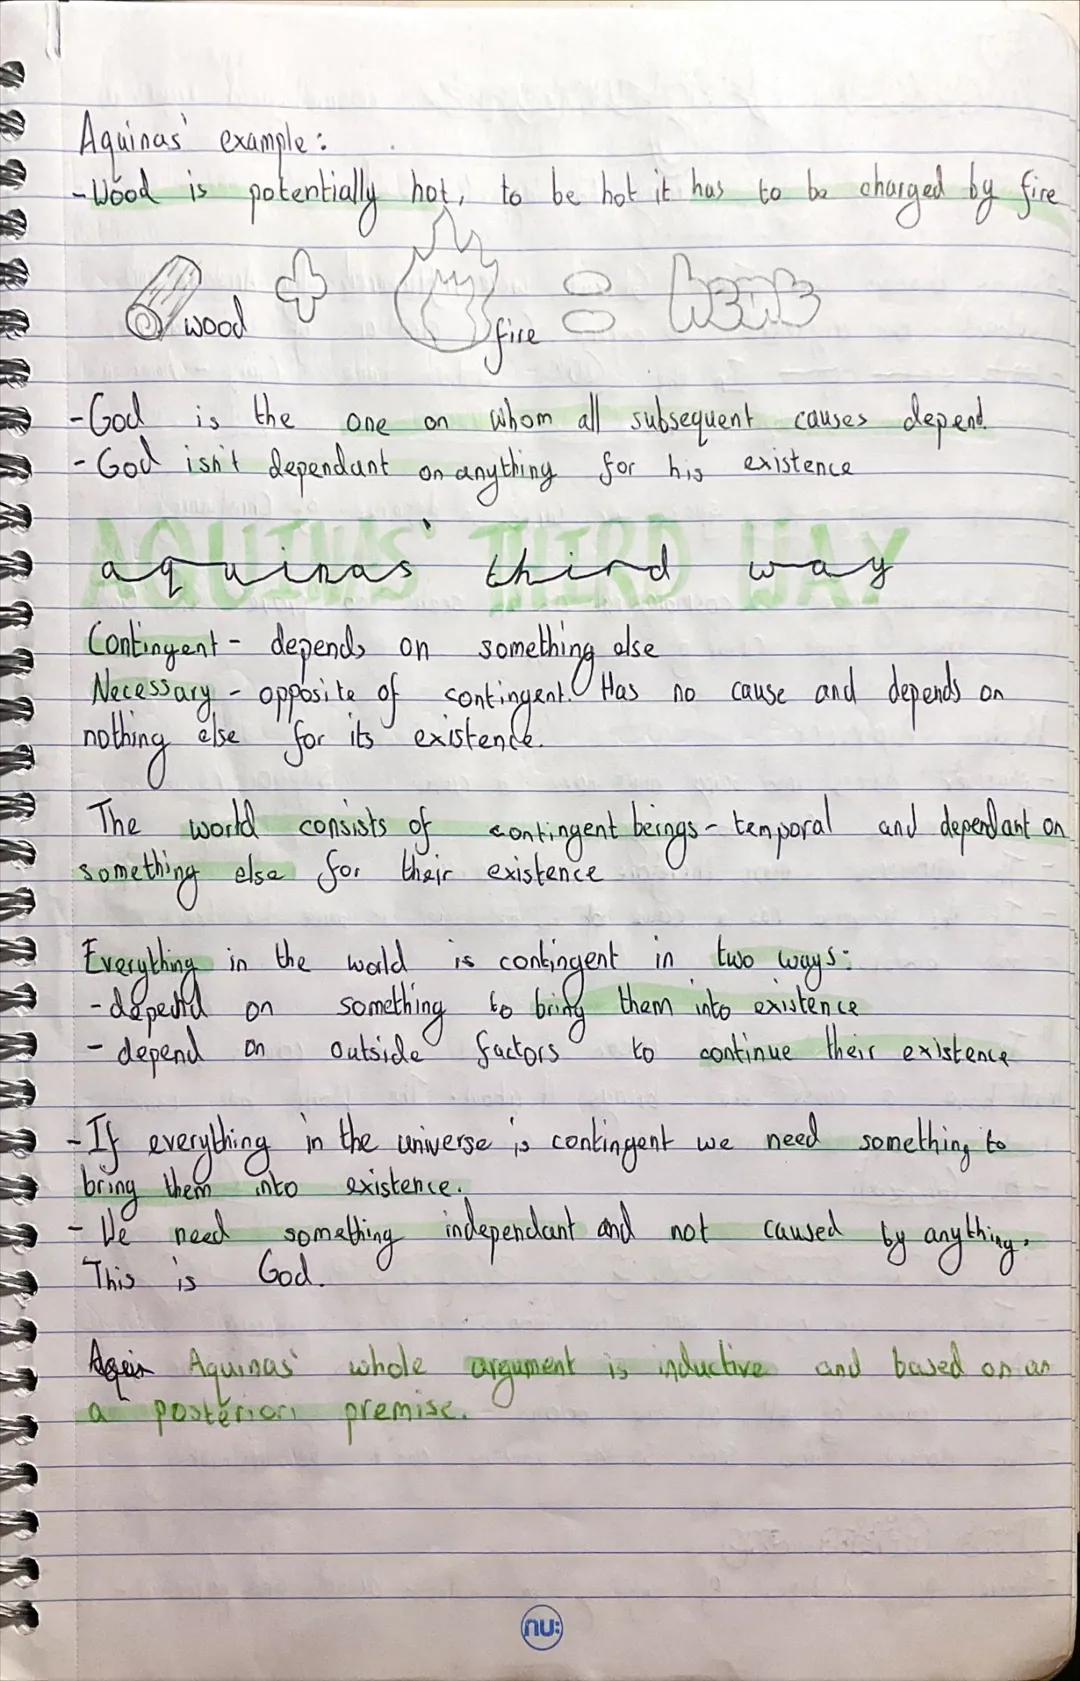 Aquinas' example:
- Wood is potentially hot, to be hot it has to be charged by fire
wood + fire = heat
- God is the one on whom all subsequent causes depend.
- God isn't dependant on anything for his existence
AQUINAS' THIRD WAY
aquinas third way
Contingent - depends on something else
Necessary - opposite of contingent. Has no cause and depends on
nothing else for its existence.
The world consists of contingent beings - temporal and dependant on
something else for their existence
Everything in the world is contingent in two ways:
- depend on something to bring them into existence
- depend on outside factors to continue their existence
- If everything in the universe is contingent we need something to
bring them into existence.
- We need something independant and not caused by anything.
This is God.
Aquinas' whole argument is inductive and based on an
a posteriori premise.
nu: